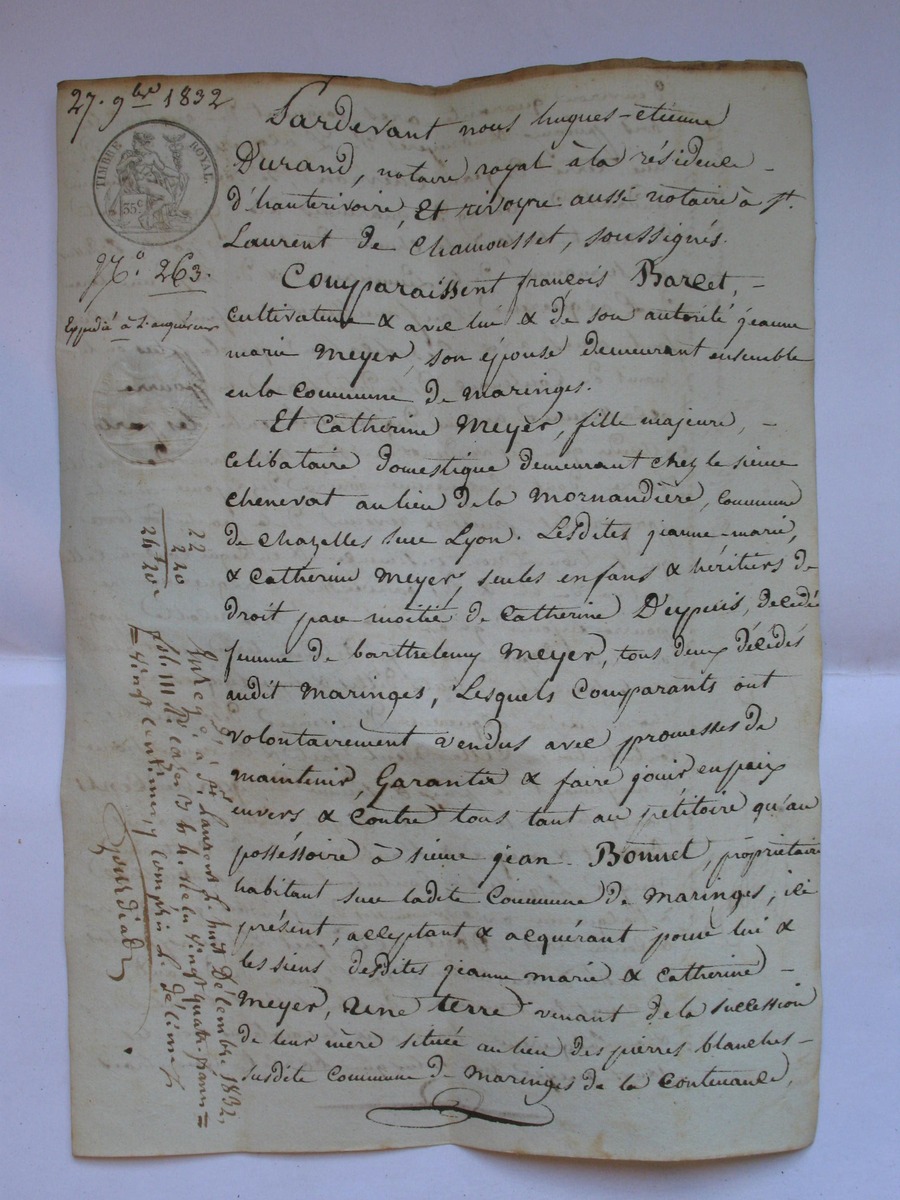 27. 9bre 1832
TIMBRE ROYAL.
35c
N.° 263.
Expédié à L'acquéreur
Pardevant nous hugues-etienne
Durand, notaire royal à la résidence
d'hauterivoire, Et rivoyre aussi notaire à St.
Laurent de Chamousset, soussignés.
Comparaissent françois Barcet,
Cultivateur & avec lui & de son autorité jeanne
marie Meyer, son épouse demeurant ensemble
en la Commune de Maringes.
Et Catherine Meyer, fille majeure,
Celibataire domestique demeurant chez le sieur
Chenevat au lieu de la Mornandière, Commune
de Chazelles sur Lyon. Lesdites jeanne-marie,
& Catherine Meyer, seules enfans & héritiers de
droit par moitié de Catherine Dupuis, décédé
femme de barthelemy Meyer, tous deux décédés
audit Maringes, Lesquels Comparants ont
volontairement vendus avec promesses de
maintenir, Garantir & faire jouir en paix
envers & Contre tous tant au pétitoire qu'au
possessoire à sieur jean Bonnet, propriétaire
habitant sur ladite Commune de Maringes, ici
présent, acceptant & acquérant pour lui &
les siens desdites jeanne marie & Catherine
Meyer, Une terre venant de la succession
de leur mère située au lieu des pierres blanches
susdite Commune de Maringes de la Contenance,
22
2 20
24f 20c
Enregé. à St. Laurent L. huit Décembre 1832,
fol. 111 Rt. Case 3 & 4. Reçu vingt quatre francs
vingt centimes compris L. Décime